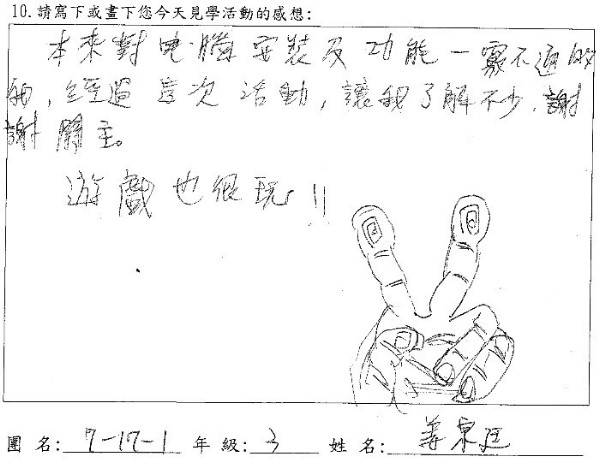 10.請寫下或畫下您今天見學活動的感想:
本來對电腦安裝及功能一竅不通的
我,經過這次活動,讓我了解不少,謝
謝關主。
遊戲也很玩!!
團 名: 7-17-1 年 級: 3 姓 名: 姜東廷